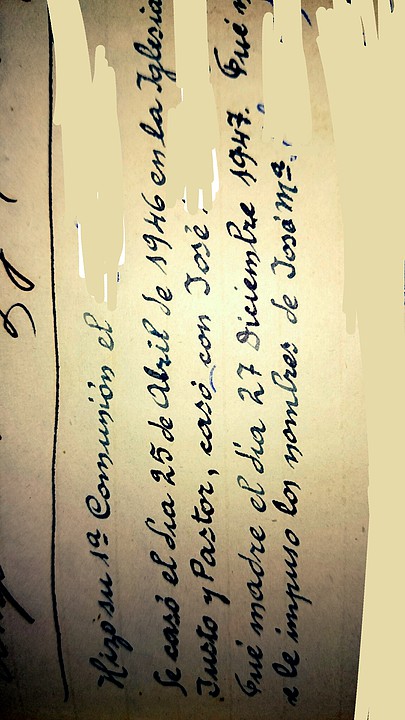 Hizo su 1ª Comunión el
Se casó el dia 25 de Abril de 1946 en la Iglesia
Justo y Pastor, casó con José
Fué madre el dia 27 Diciembre 1947. Fué
e le impuso los nombres de José Mª.